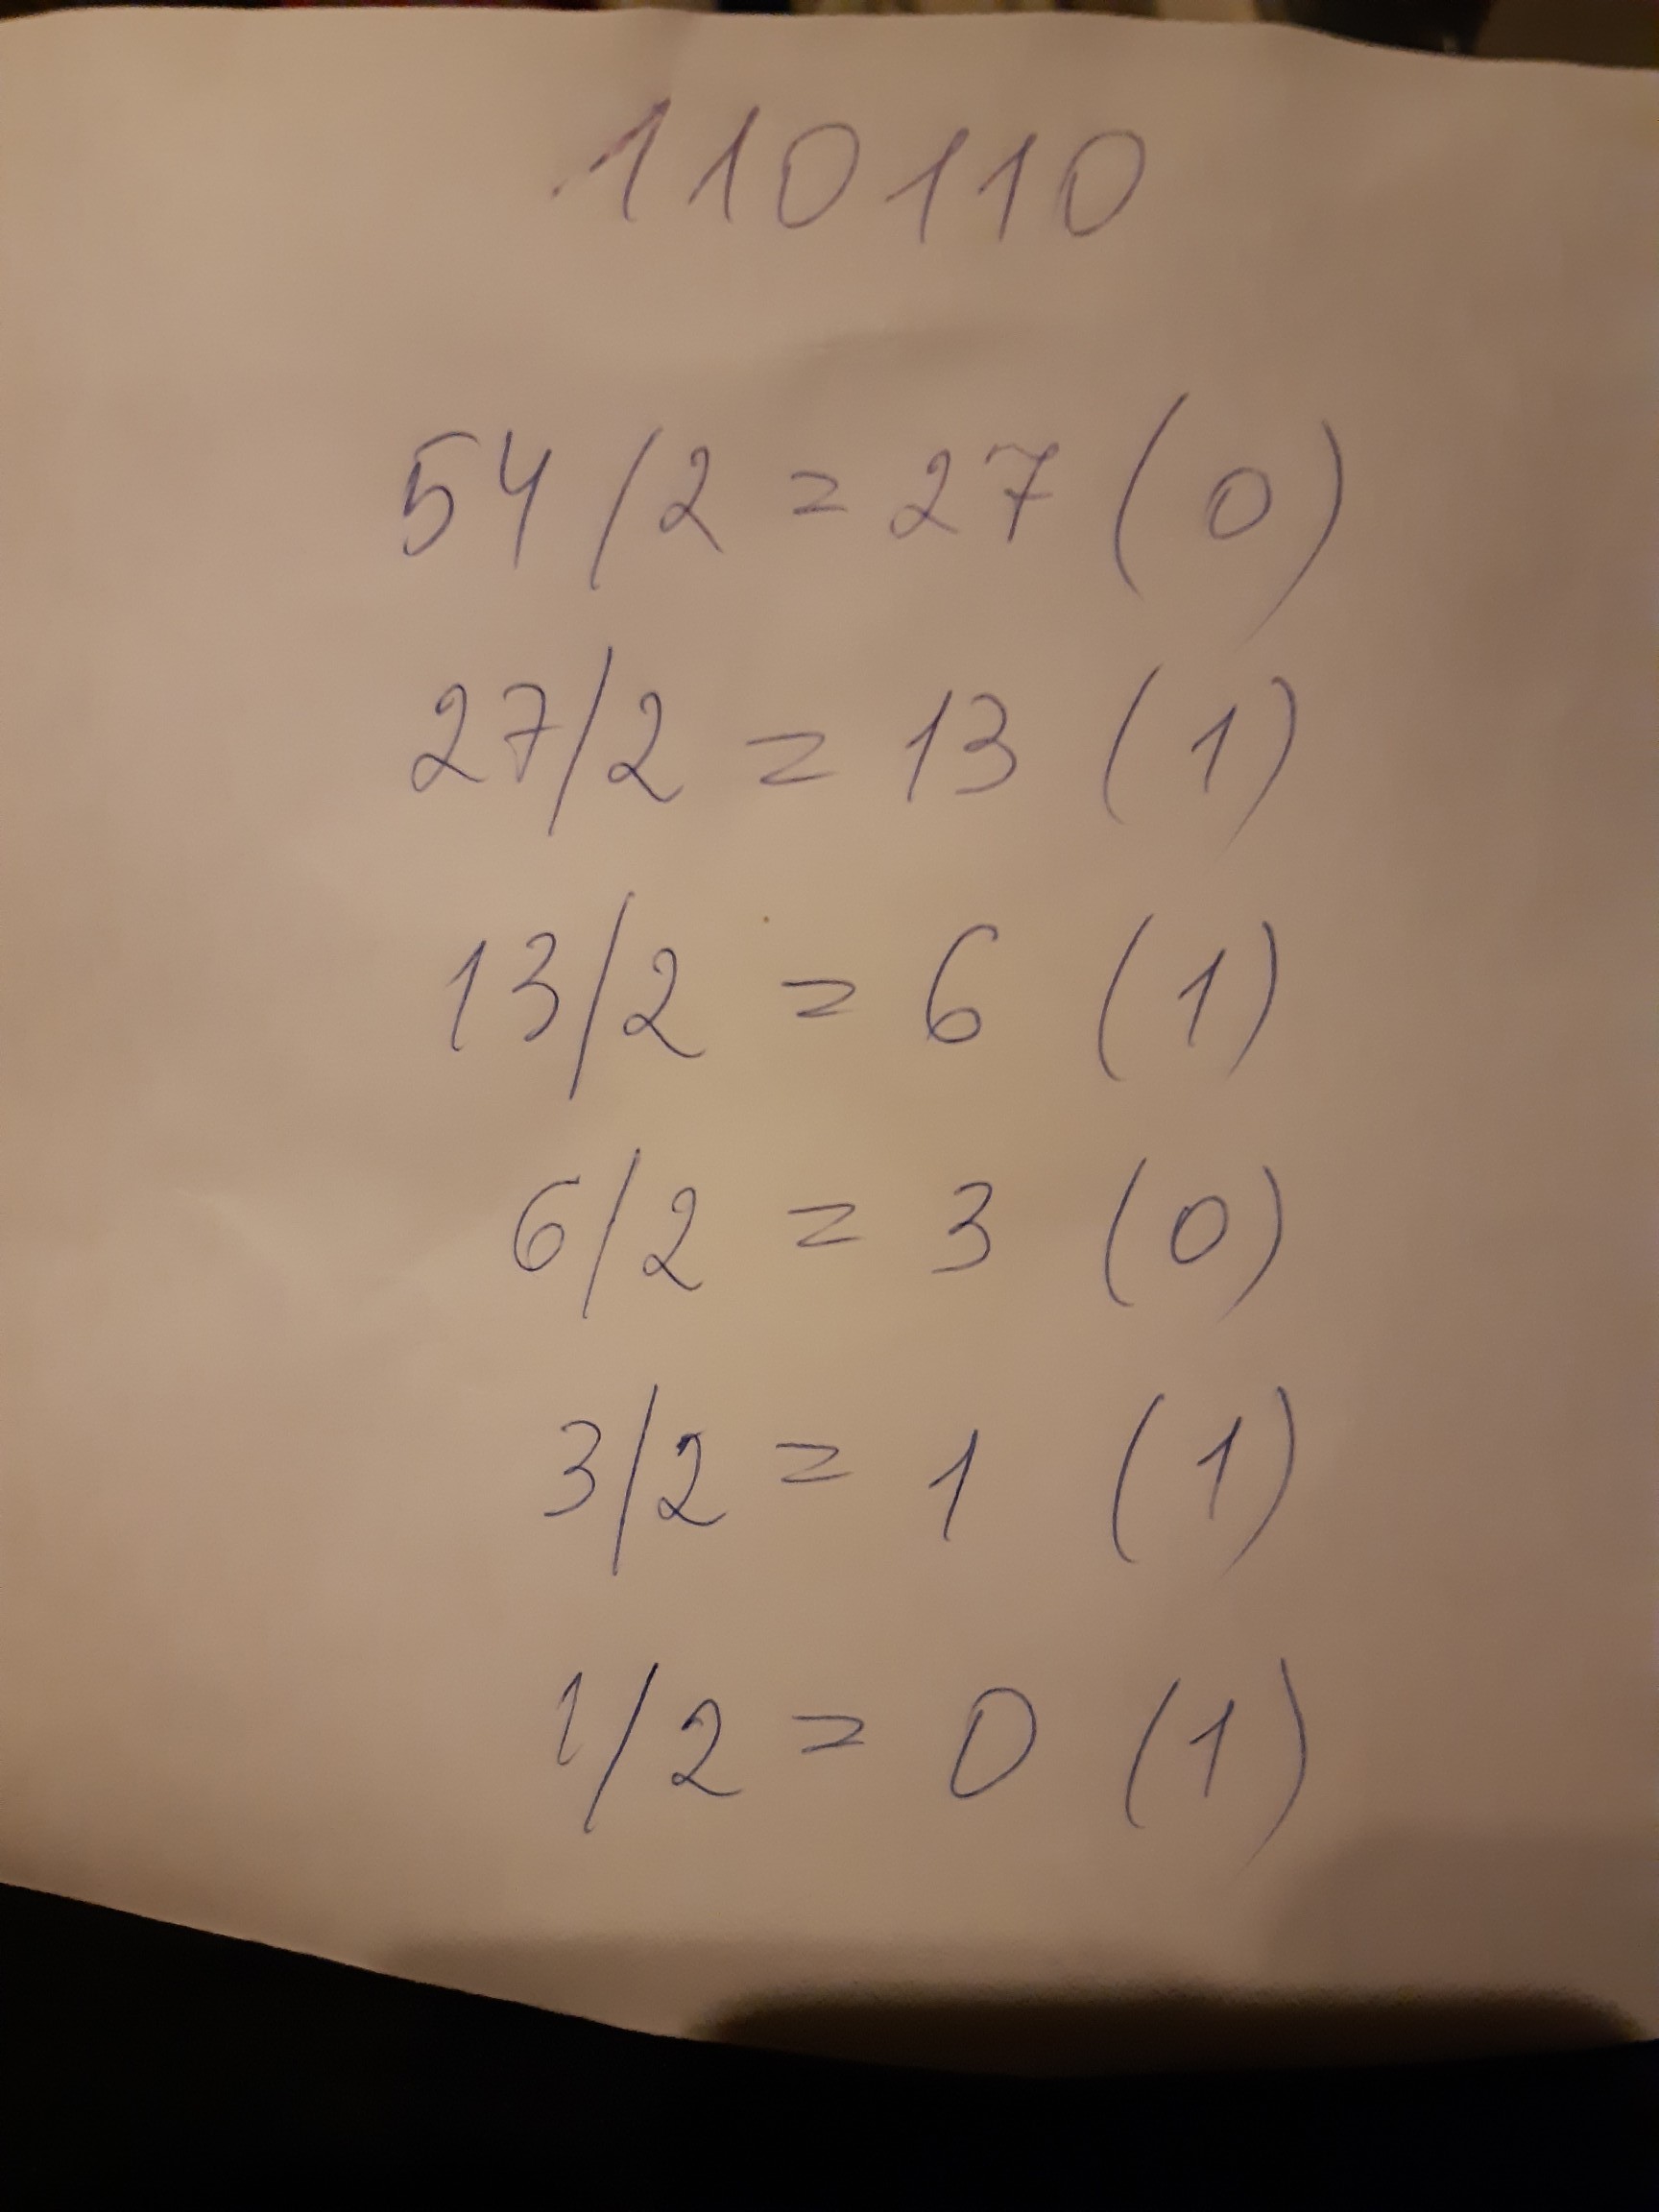 110110
54/2 = 27 (0)
27/2 = 13 (1)
13/2 = 6 (1)
6/2 = 3 (0)
3/2 = 1 (1)
1/2 = 0 (1)